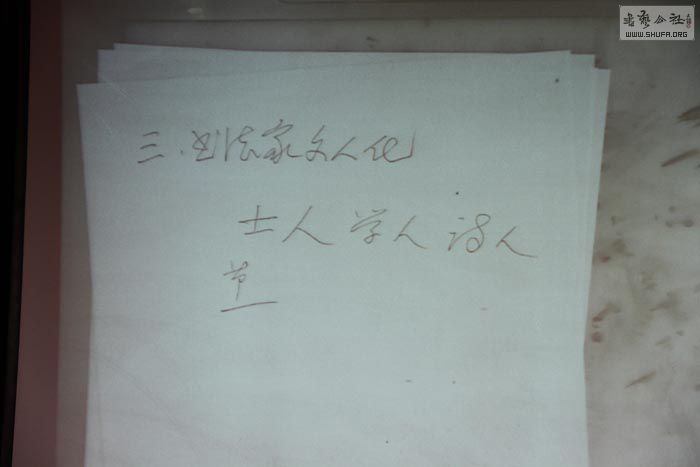 书艺公社
WWW.SHUFA.ORG
三.书法家文人化
士人 学人 诗人
节